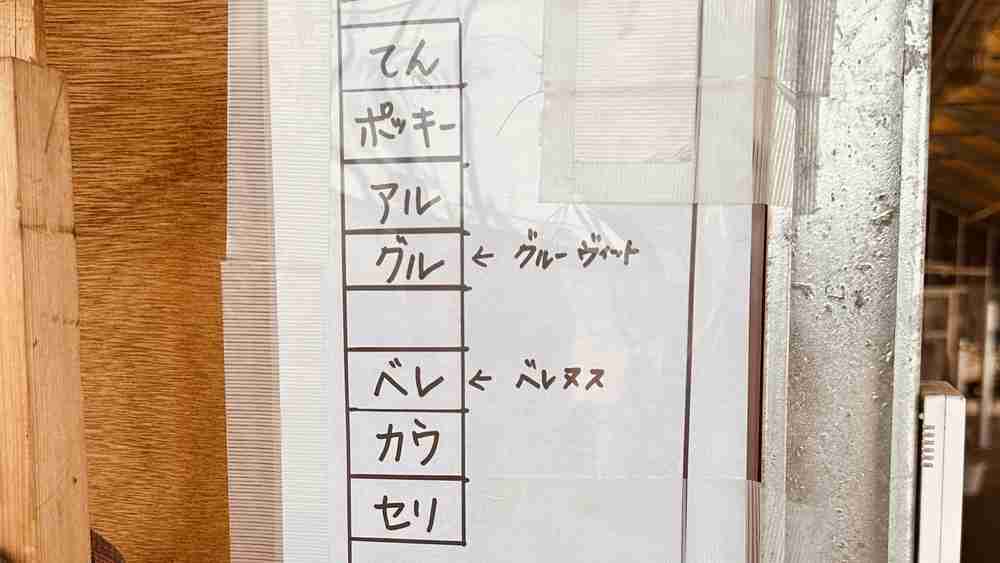 てん
ポッキー
アル
グル ← グルーヴィット
ベレ ← ベレヌス
カウ
セリ